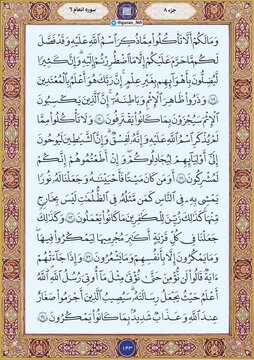 جزء ۸
@quran_365
سوره انعام ۶
وَمَا لَكُمْ أَلَّا تَأْكُلُوا مِمَّا ذُكِرَ اسْمُ اللَّهِ عَلَيْهِ وَقَدْ فَصَّلَ
لَكُمْ مَا حَرَّمَ عَلَيْكُمْ إِلَّا مَا اضْطُرِرْتُمْ إِلَيْهِ وَإِنَّ كَثِيرًا
لَيُضِلُّونَ بِأَهْوَائِهِمْ بِغَيْرِ عِلْمٍ إِنَّ رَبَّكَ هُوَ أَعْلَمُ بِالْمُعْتَدِينَ
۝ وَذَرُوا ظَاهِرَ الْإِثْمِ وَبَاطِنَهُ إِنَّ الَّذِينَ يَكْسِبُونَ
الْإِثْمَ سَيُجْزَوْنَ بِمَا كَانُوا يَقْتَرِفُونَ ۝ وَلَا تَأْكُلُوا مِمَّا
لَمْ يُذْكَرِ اسْمُ اللَّهِ عَلَيْهِ وَإِنَّهُ لَفِسْقٌ وَإِنَّ الشَّيَاطِينَ لَيُوحُونَ
إِلَى أَوْلِيَائِهِمْ لِيُجَادِلُوكُمْ وَإِنْ أَطَعْتُمُوهُمْ إِنَّكُمْ
لَمُشْرِكُونَ ۝ أَوَمَنْ كَانَ مَيْتًا فَأَحْيَيْنَاهُ وَجَعَلْنَا لَهُ نُورًا
يَمْشِي بِهِ فِي النَّاسِ كَمَنْ مَثَلُهُ فِي الظُّلُمَاتِ لَيْسَ بِخَارِجٍ
مِنْهَا كَذَلِكَ زُيِّنَ لِلْكَافِرِينَ مَا كَانُوا يَعْمَلُونَ ۝ وَكَذَلِكَ
جَعَلْنَا فِي كُلِّ قَرْيَةٍ أَكَابِرَ مُجْرِمِيهَا لِيَمْكُرُوا فِيهَا
وَمَا يَمْكُرُونَ إِلَّا بِأَنْفُسِهِمْ وَمَا يَشْعُرُونَ ۝ وَإِذَا جَاءَتْهُمْ
آيَةٌ قَالُوا لَنْ نُؤْمِنَ حَتَّى نُؤْتَى مِثْلَ مَا أُوتِيَ رُسُلُ اللَّهِ اللَّهُ
أَعْلَمُ حَيْثُ يَجْعَلُ رِسَالَتَهُ سَيُصِيبُ الَّذِينَ أَجْرَمُوا صَغَارٌ
عِنْدَ اللَّهِ وَعَذَابٌ شَدِيدٌ بِمَا كَانُوا يَمْكُرُونَ ۝
۱۴۳